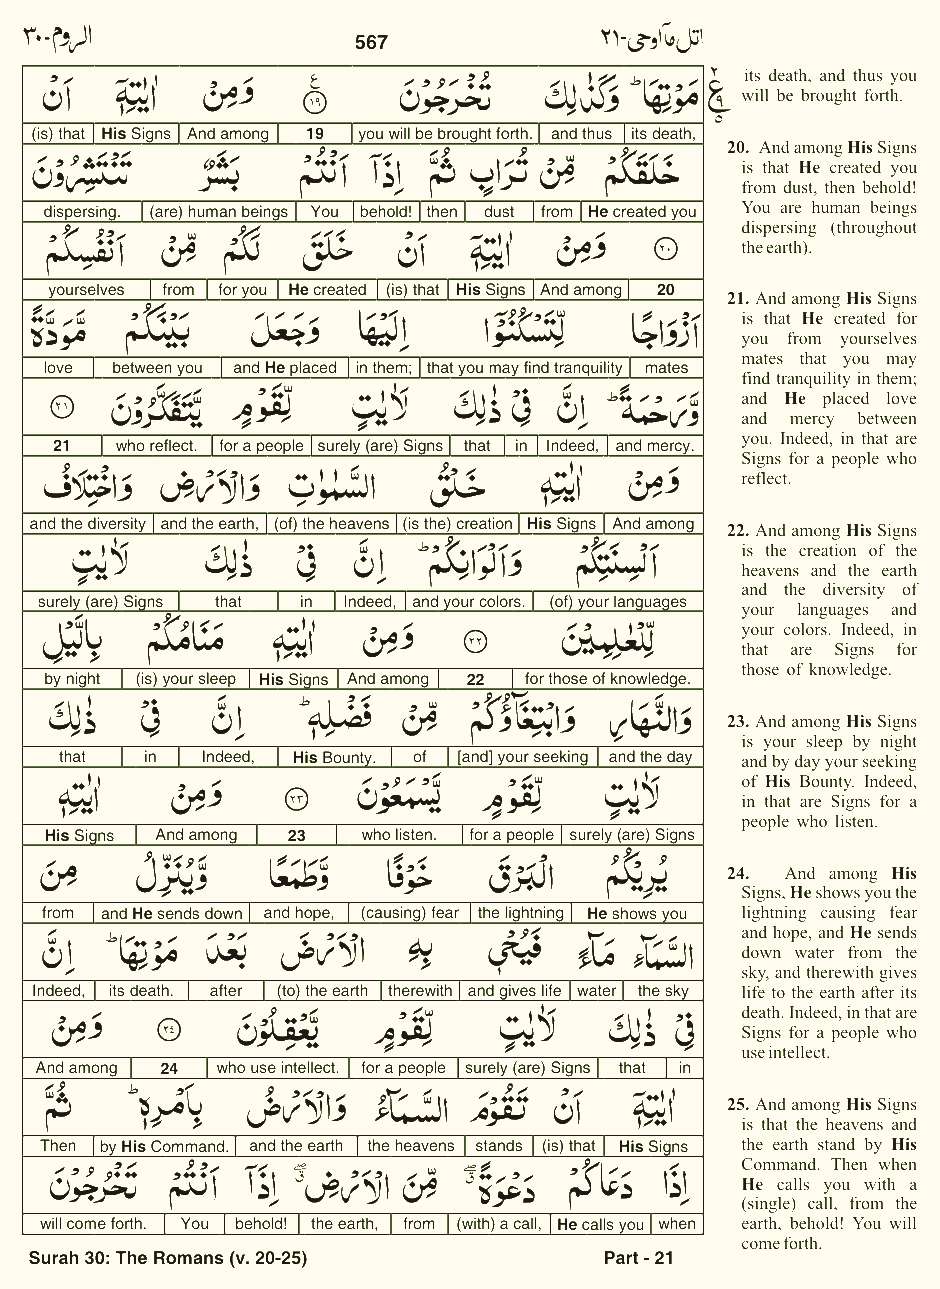 الروم-۳۰ 567 اتل مآ اوحی-۲۱
مَوْتِهَا ؕ وَكَذٰلِكَ تُخْرَجُوْنَ ۱۹ وَمِنْ اٰيٰتِهٖۤ اَنْ
(is) that His Signs And among 19 you will be brought forth. and thus its death,
خَلَقَكُمْ مِّنْ تُرَابٍ ثُمَّ اِذَاۤ اَنْتُمْ بَشَرٌ تَنْتَشِرُوْنَ
dispersing. (are) human beings You behold! then dust from He created you
۲۰ وَمِنْ اٰيٰتِهٖۤ اَنْ خَلَقَ لَكُمْ مِّنْ اَنْفُسِكُمْ
yourselves from for you He created (is) that His Signs And among 20
اَزْوَاجًا لِّتَسْكُنُوْۤا اِلَيْهَا وَجَعَلَ بَيْنَكُمْ مَّوَدَّةً
love between you and He placed in them; that you may find tranquility mates
وَّرَحْمَةً ؕ اِنَّ فِيْ ذٰلِكَ لَاٰيٰتٍ لِّقَوْمٍ يَّتَفَكَّرُوْنَ ۲۱
21 who reflect. for a people surely (are) Signs that in Indeed, and mercy.
وَمِنْ اٰيٰتِهٖ خَلْقُ السَّمٰوٰتِ وَالْاَرْضِ وَاخْتِلَافُ
and the diversity and the earth, (of) the heavens (is the) creation His Signs And among
اَلْسِنَتِكُمْ وَاَلْوَانِكُمْ ؕ اِنَّ فِيْ ذٰلِكَ لَاٰيٰتٍ
surely (are) Signs that in Indeed, and your colors. (of) your languages
لِّلْعٰلِمِيْنَ ۲۲ وَمِنْ اٰيٰتِهٖ مَنَامُكُمْ بِالَّيْلِ
by night (is) your sleep His Signs And among 22 for those of knowledge.
وَالنَّهَارِ وَابْتِغَآؤُكُمْ مِّنْ فَضْلِهٖ ؕ اِنَّ فِيْ ذٰلِكَ
that in Indeed, His Bounty. of [and] your seeking and the day
لَاٰيٰتٍ لِّقَوْمٍ يَّسْمَعُوْنَ ۲۳ وَمِنْ اٰيٰتِهٖ
His Signs And among 23 who listen. for a people surely (are) Signs
يُرِيْكُمُ الْبَرْقَ خَوْفًا وَّطَمَعًا وَّيُنَزِّلُ مِنَ
from and He sends down and hope, (causing) fear the lightning He shows you
السَّمَآءِ مَآءً فَيُحْيٖ بِهِ الْاَرْضَ بَعْدَ مَوْتِهَا ؕ اِنَّ
Indeed, its death. after (to) the earth therewith and gives life water the sky
فِيْ ذٰلِكَ لَاٰيٰتٍ لِّقَوْمٍ يَّعْقِلُوْنَ ۲۴ وَمِنْ
And among 24 who use intellect. for a people surely (are) Signs that in
اٰيٰتِهٖۤ اَنْ تَقُوْمَ السَّمَآءُ وَالْاَرْضُ بِاَمْرِهٖ ؕ ثُمَّ
Then by His Command. and the earth the heavens stands (is) that His Signs
اِذَا دَعَاكُمْ دَعْوَةً ۖ مِّنَ الْاَرْضِ ۖ اِذَاۤ اَنْتُمْ تَخْرُجُوْنَ
will come forth. You behold! the earth, from (with) a call, He calls you when
Surah 30: The Romans (v. 20-25) Part - 21
its death, and thus you
will be brought forth.
20. And among His Signs
is that He created you
from dust, then behold!
You are human beings
dispersing (throughout
the earth).
21. And among His Signs
is that He created for
you from yourselves
mates that you may
find tranquility in them;
and He placed love
and mercy between
you. Indeed, in that are
Signs for a people who
reflect.
22. And among His Signs
is the creation of the
heavens and the earth
and the diversity of
your languages and
your colors. Indeed, in
that are Signs for
those of knowledge.
23. And among His Signs
is your sleep by night
and by day your seeking
of His Bounty. Indeed,
in that are Signs for a
people who listen.
24. And among His
Signs, He shows you the
lightning causing fear
and hope, and He sends
down water from the
sky, and therewith gives
life to the earth after its
death. Indeed, in that are
Signs for a people who
use intellect.
25. And among His Signs
is that the heavens and
the earth stand by His
Command. Then when
He calls you with a
(single) call, from the
earth, behold! You will
come forth.